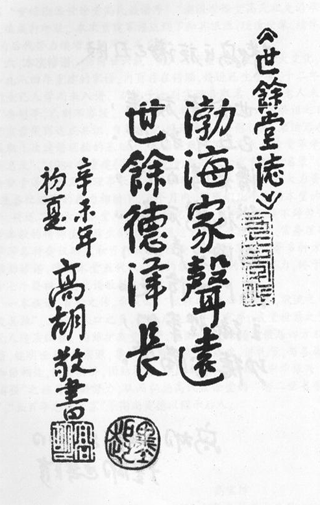 《世餘堂誌》
渤海家聲遠
世餘德澤長
辛未年
初夏
高胡敬書